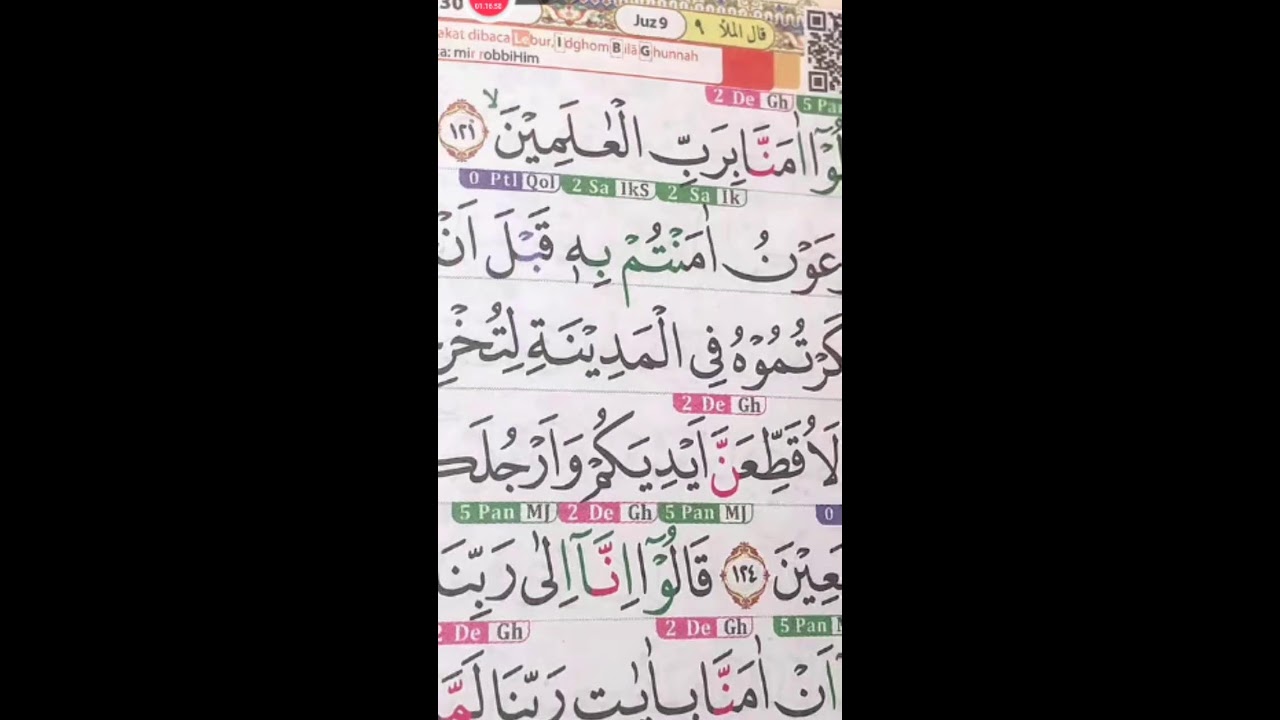 30
01:16:58
Juz 9
قال الملأ ٩
dibaca Lebur, Idghom Bilā Ghunnah
mir robbiHim
2 De Gh
اٰمَنَّا بِرَبِّ الْعٰلَمِيْنَۙ ١٢١
0 Ptl Qol 2 Sa IkS 2 Sa Ik
اٰمَنْتُمْ بِهٖ قَبْلَ اَنْ
فِى الْمَدِيْنَةِ
2 De Gh
لَاُقَطِّعَنَّ اَيْدِيَكُمْ
5 Pan MJ 2 De Gh 5 Pan MJ 0
١٢٤ قَالُوْٓا اِنَّآ اِلٰى
2 De Gh 2 De Gh 5 Pan
اَنْ اٰمَنَّا بِاٰيٰتِ رَبِّنَا